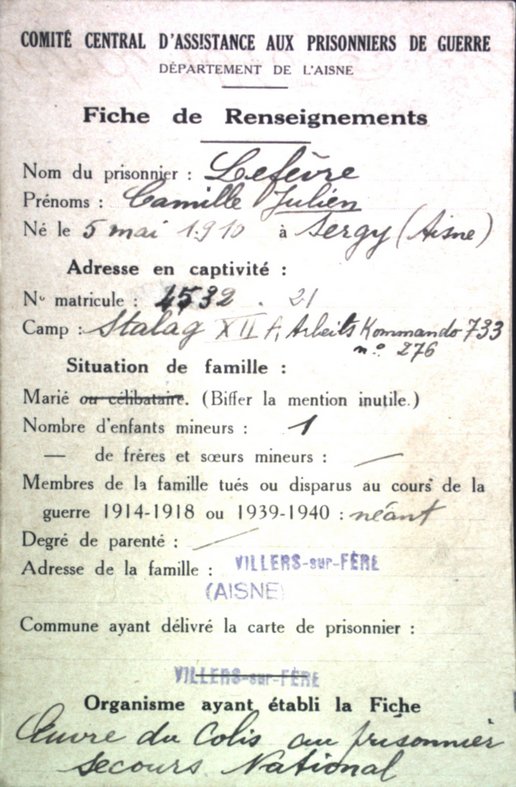 COMITÉ CENTRAL D'ASSISTANCE AUX PRISONNIERS DE GUERRE
DÉPARTEMENT DE L'AISNE
Fiche de Renseignements
Nom du prisonnier : Lefèvre
Prénoms : Camille Julien
Né le 5 mai 1910 à Sergy (Aisne)
Adresse en captivité :
N° matricule : 4532 . 21
Camp : Stalag XII F, Arbeits Kommando 733
n° 276
Situation de famille :
Marié ou célibataire. (Biffer la mention inutile.)
Nombre d'enfants mineurs : 1
— de frères et sœurs mineurs : —
Membres de la famille tués ou disparus au cours de la
guerre 1914-1918 ou 1939-1940 : néant
Degré de parenté : —
Adresse de la famille : VILLERS-sur-FÈRE
(AISNE)
Commune ayant délivré la carte de prisonnier :
VILLERS-sur-FÈRE
Organisme ayant établi la Fiche
Œuvre du Colis au prisonnier
Secours National